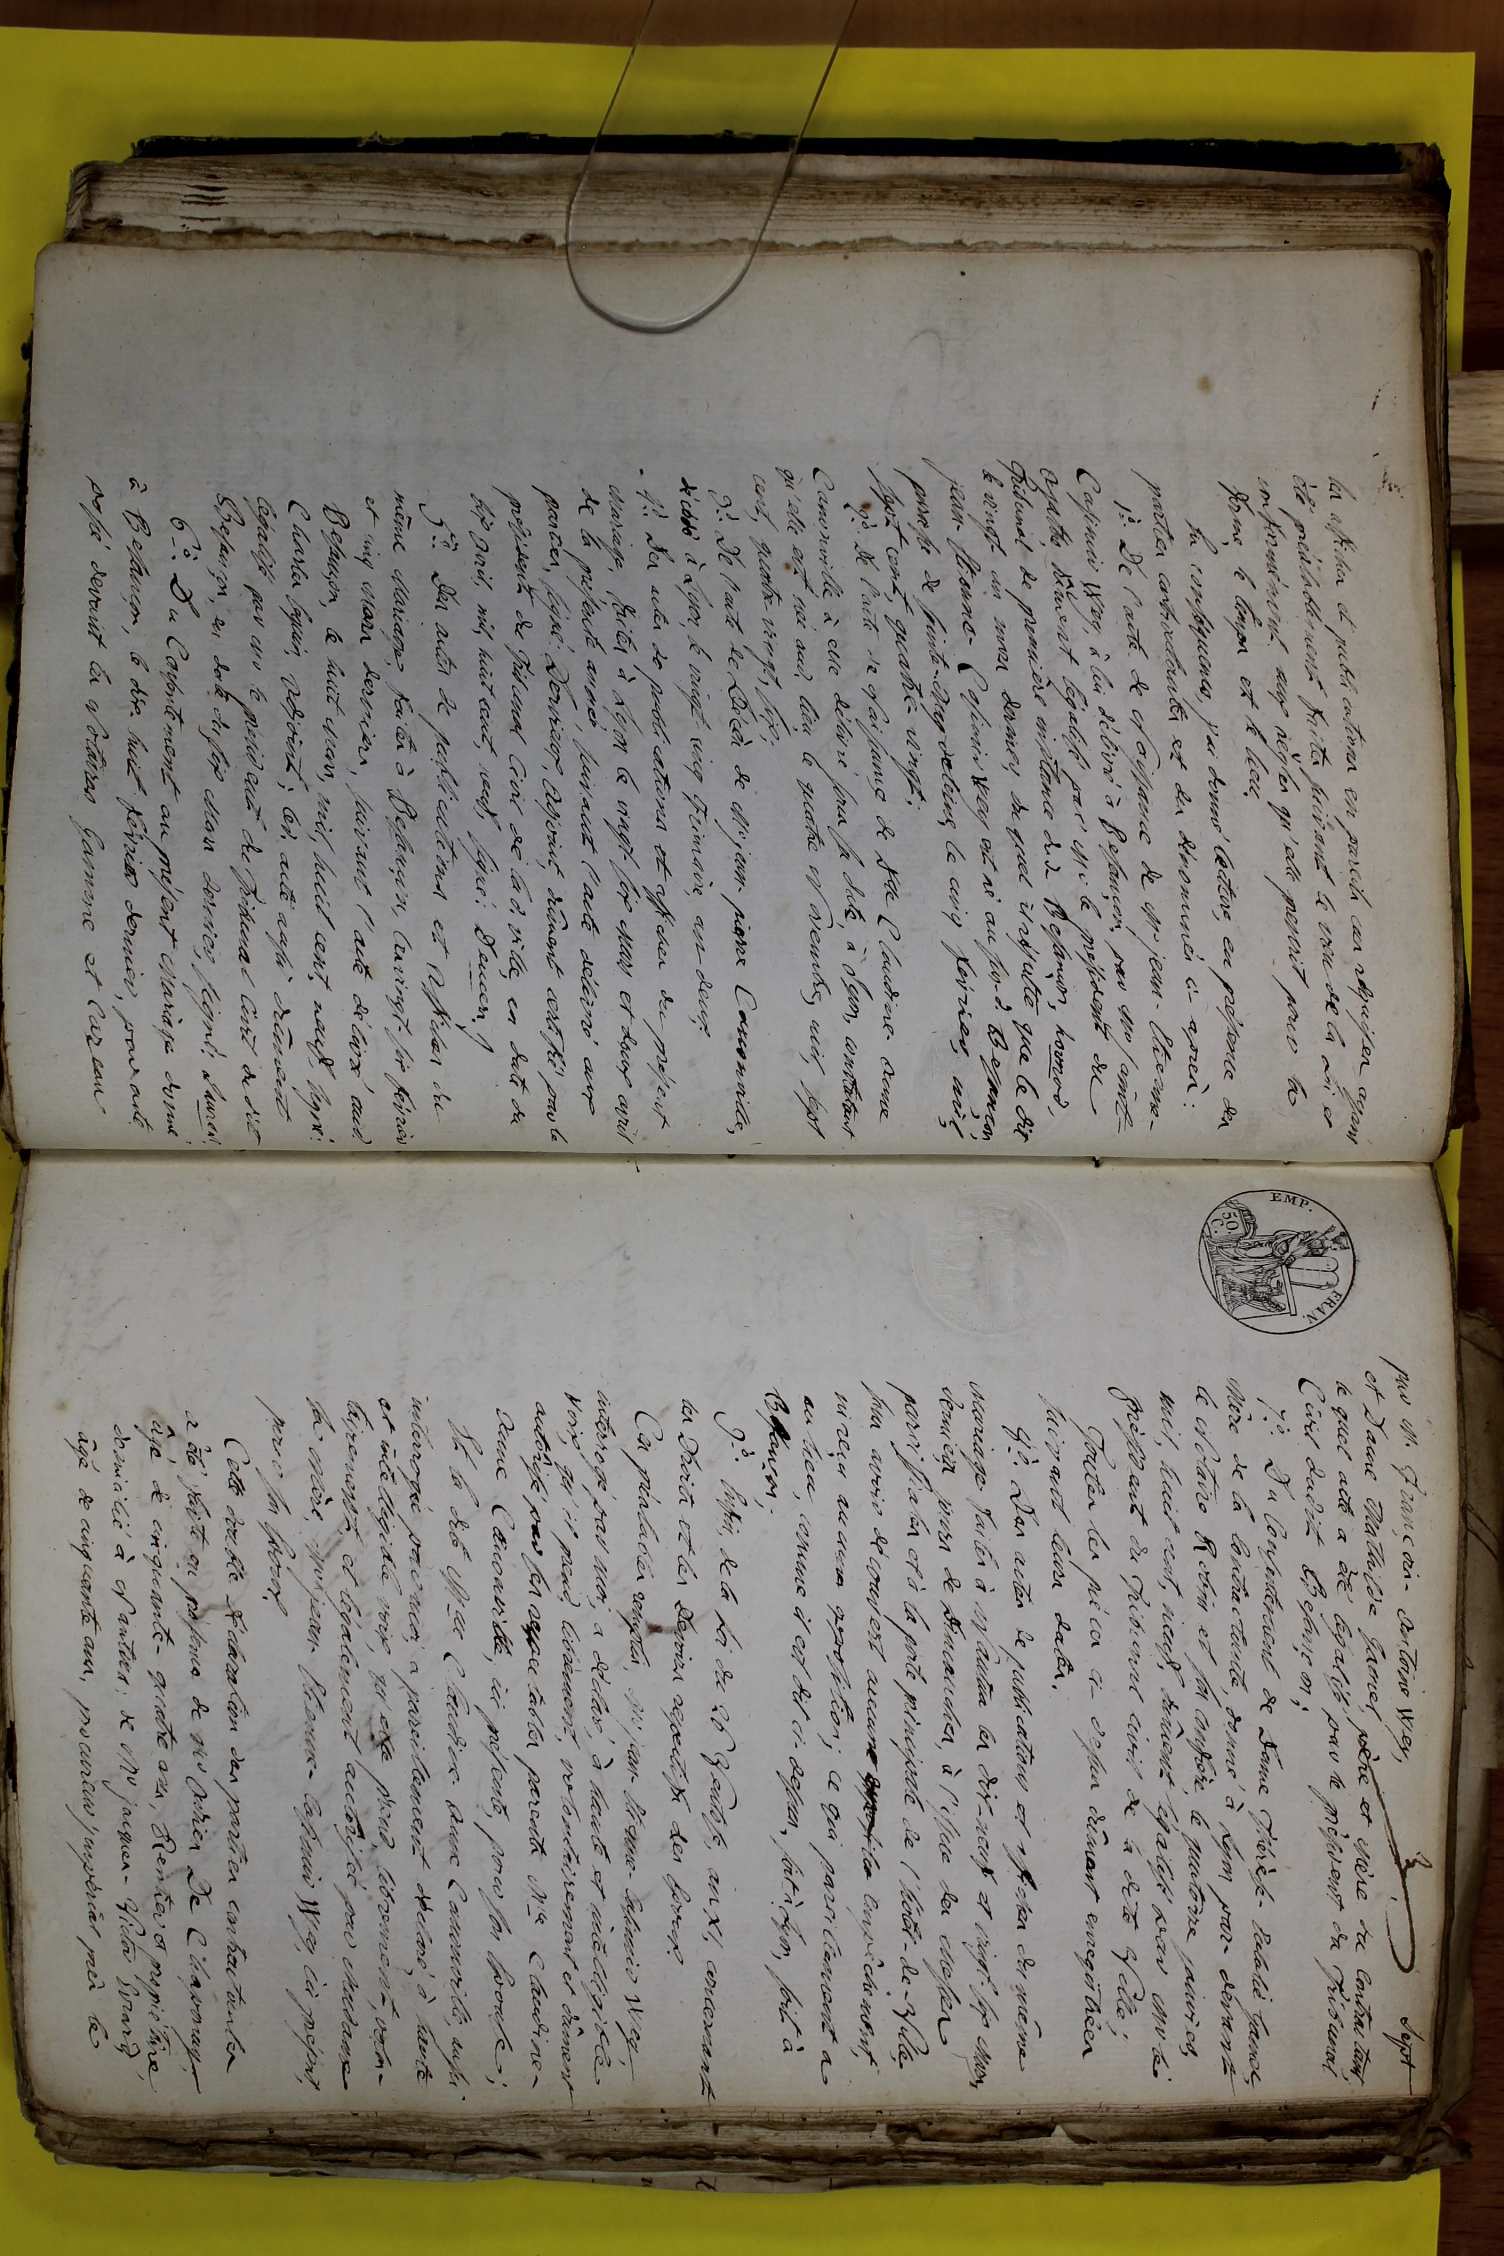 les affiches et publications en pareil cas requises ayant
été préalablement faites suivant le vœu de la Loi et
conformément aux règles qu'elle prescrit pour la
forme le temps et le lieu.
En conséquence, j'ai donné lecture, en présence des
parties contractantes et des dénommés ci-après:
1.° De l'acte de Naissance de Mr jean-Etienne-
Casimir Wey, à lui délivré à Besançon, par
dûment légalisé par Mr le président du
Tribunal de première instance de Besançon,
le vingt-un mars dernier, duquel il résulte que le dit
jean-Etienne-Casimir Wey est né au susd. Besançon,
paroisse de Sainte-Magdeleine, le cinq février, mil
sept cent, quatre-vingt.
2.° De l'acte de Naissance de Dlle Claudine-anne
Canonville à elle délivré sous sa date, à Lyon, constatant
qu'elle est née aud. lieu le quatre Novembre, mil, sept
cent, quatre-vingt, six;
3.° De l'acte de Décès de Mr jean-pierre Canonville,
décédé à Lyon, le vingt cinq frimaire, an deux
4.° Des actes de publications et affiches du présent
mariage, faites à Lyon le vingt-six Mars et deux avril
de la présente année, suivant l'acte délivré aux
parties, signé: Adjoint, dûment certifié par le
président du Tribunal Civil de lad. ville, en date du
six avril, mil, huit cent, neuf, signé:
5.° Des actes de publications et affiches du
même Mariage, faites à Besançon, les vingt-six février
et cinq Mars dernier, suivant l'acte délivré aud.
Besançon, le huit mars, mil, huit cent, neuf, signé:
Charles Seguin adjoint; led. acte aussi dûment
légalisé par Mr le président du Tribunal Civil du dit
Besançon, en date du six Mars dernier, signé:
6.° Du Consentement au présent Mariage donné
à Besançon, le dix-huit février dernier, par acte
passé devant les Notaires Gamme et

Sept
par M. François-Antoine Wey,
et Dame Mathilde père et Mère du Contractant,
lequel acte a été légalisé par le président du Tribunal
Civil dudit Besançon;
7.° Du Consentement de Dame Thérèse-
Mère de la Contractante, donné à Lyon par-devant
le Notaire Robin et son confrère le quatorze janvier,
mil, huit cent, neuf, dûment légalisé par Mr le
président du Tribunal civil de la dite Ville;
Toutes les pièces ci-dessus dûment enregistrées
suivant leurs dates.
8.° Des actes de publications et affiches du même
Mariage faites à Nantua les dix-neuf et vingt-six Mars
derniers jours de Dimanches, à l'issue des Messes
paroissiales et à la porte principale de l'hôtel-de-Ville,
sans avoir découvert aucun empêchement,
ni reçu aucune opposition; ce qui pareillement a
eu lieu, comme il est dit ci-dessus, soit à Lyon, soit à
Besançon;
9.° Enfin, de la Loi du 26 Ventôse, an XI, concernant
les Droits et les Devoirs respectifs des Epoux
Ces préalables remplis, Mr jean-Etienne-Casimir Wey,
interrogé par moi, a déclaré, à haute et intelligible
voix, qu'il prend, librement, volontairement et dûment
autorisé par ses respectables parents Mlle Claudine-
anne Canonville, ici présente, pour son Epouse;
Et la dite Mlle Claudine-anne Canonville, aussi
interrogée par moi, a pareillement déclaré, à haute
et intelligible voix, qu'elle prend, librement, volon-
tairement et légalement autorisée par Madame
sa mère, Mr jean-Etienne-Casimir Wey, ici présent,
pour son Epoux.
Cette double déclaration des parties contractantes
a été faite en présence de Mr Adrien De Chavomay
âgé de cinquante-quatre ans, Rentier et propriétaire
domicilié à Nantua; de Mr jacques-Victor
âgé de cinquante ans, procureur impérial près le
EMP. FRAN.
50 C.